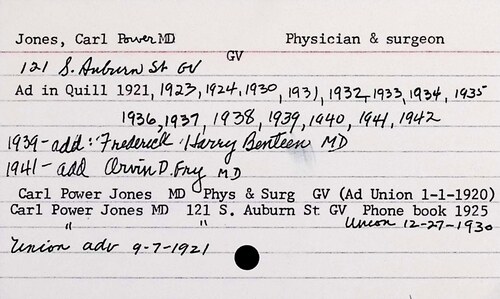 Jones, Carl Power MD Physician & surgeon
GV
121 S. Auburn St GV
Ad in Quill 1921, 1923, 1924, 1930, 1931, 1932, 1933, 1934, 1935
1936, 1937, 1938, 1939, 1940, 1941, 1942
1939 - add: Frederick Harry Benteen MD
1941 - add Orvin D. Fry MD
Carl Power Jones MD Phys & Surg GV (Ad Union 1-1-1920)
Carl Power Jones MD 121 S. Auburn St GV Phone book 1925
" " Union 12-27-1930
Union adv 9-7-1921